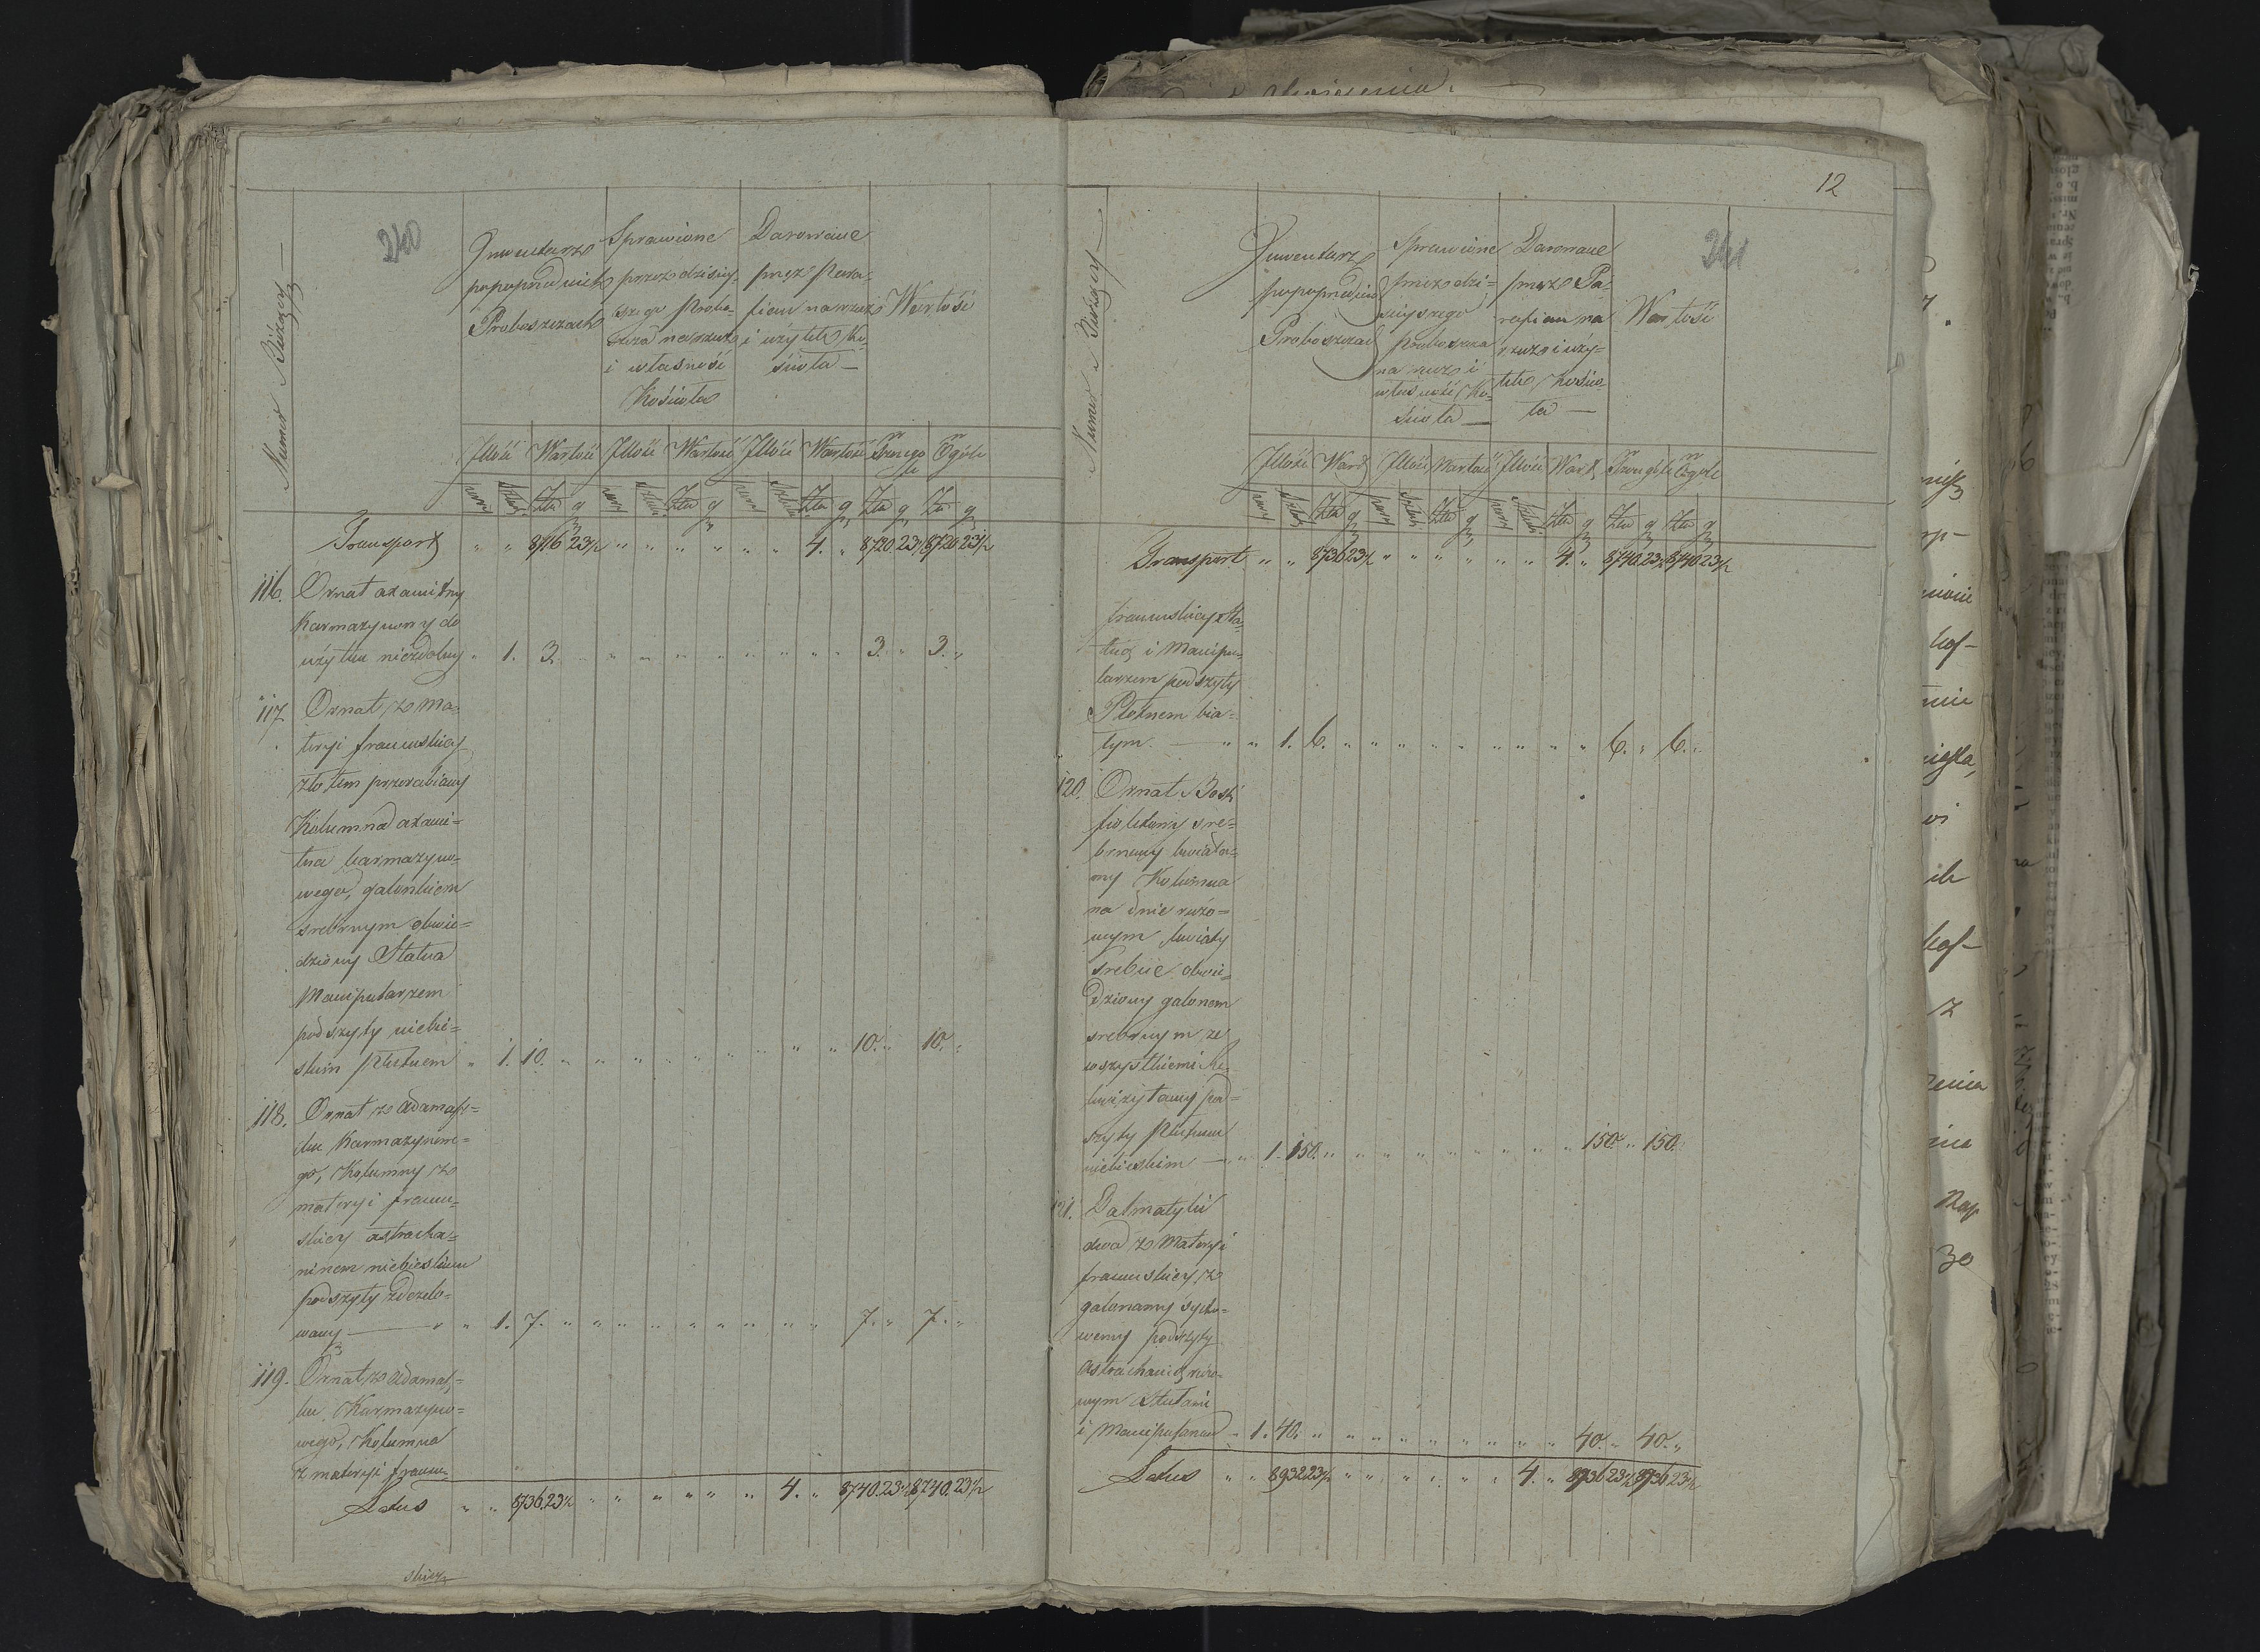 240
Numer Bieżący
Inwentarz
po poprzednich
Proboszczach
Sprawione
przez dzisiej-
szego Probo-
szcza na rzecz
i własność
Kościoła
Darowane
przez Para-
fian na rzecz
i użytek Ko-
ścioła —
Wartość
Jllość Wartość Jllość Wartość Jllość Wartość Szczegó Ogóle
Transport " " 8716 23½ " " " " " " 4. " 8720.23½ 8720 23½
116. Ornat axamitny
Karmazynowy do
użytku niezdolny " 1. 3. " " " " " " " " " 3. " 3. "
117. Ornat z Ma-
teryi francuskiej
złotem przerabiany
Kolumna axami-
tna karmazyno-
wego, galonkiem
srebrnym obwie-
dziony Stuła
Manipularzem
podszyty niebie-
skim Płutnem " 1. 10. " " " " " " " " " 10. " 10. "
118. Ornat z adamasz-
ku Karmazynowe-
go, Kolumny z
materyi francu-
skiey astracha-
ninem niebieskim
podszyty zdezelo-
wany — " " 1. 7. " " " " " " " " " 7. " 7. "
119. Ornat z adamasz-
ku Karmazyno-
wego, Kolumna
z materyi francu-
Latus " " 8736.23½ " " " " " " 4. " 8740.23½ 8740.23½
skiey
12
241
Numer Bieżący
Inwentarz
po poprzednich
Proboszczach
Sprawione
przez dzi-
siejszego
proboszcza
na rzecz i
własność Ko-
ścioła —
Darowane
przez Pa-
rafian na
rzecz i uży-
tek Kościo-
ła —
Wartość
Jllość Wart Jllość Wartość Jllość Wart. Szczególe Ogóle
Transport " " 8736 23½ " " " " " " 4. " 8740.23½ 8740 23½
francuskiey Stu-
łą i Manipu-
larzem podszyty
Płótnem bia-
łym. — " " 1. 6. " " " " " " " " " 6. " 6. "
120. Ornat Boski
fioletowy sre-
brnemy kwiata-
my Kolumna
na dnie rużo-
wym kwiaty
srebne obwie-
dziony galonem
srebrnym ze
wszystkiemi Re-
kwizytamy pod-
szyty Płutnem
niebieskim — " " 1. 150. " " " " " " " " " 150. " 150.
121. Dalmatyki
dwa z Materyi
francuskiey, z
galonamy sycho-
wemy podszyty
Astrachanią rużo-
wym Stułami
i Manipularzam " 1. 40. " " " " " " " " " 40. " 40. "
Latus " " 8932 23½ " " " " " " 4. " 8936 23½ 8936 23½